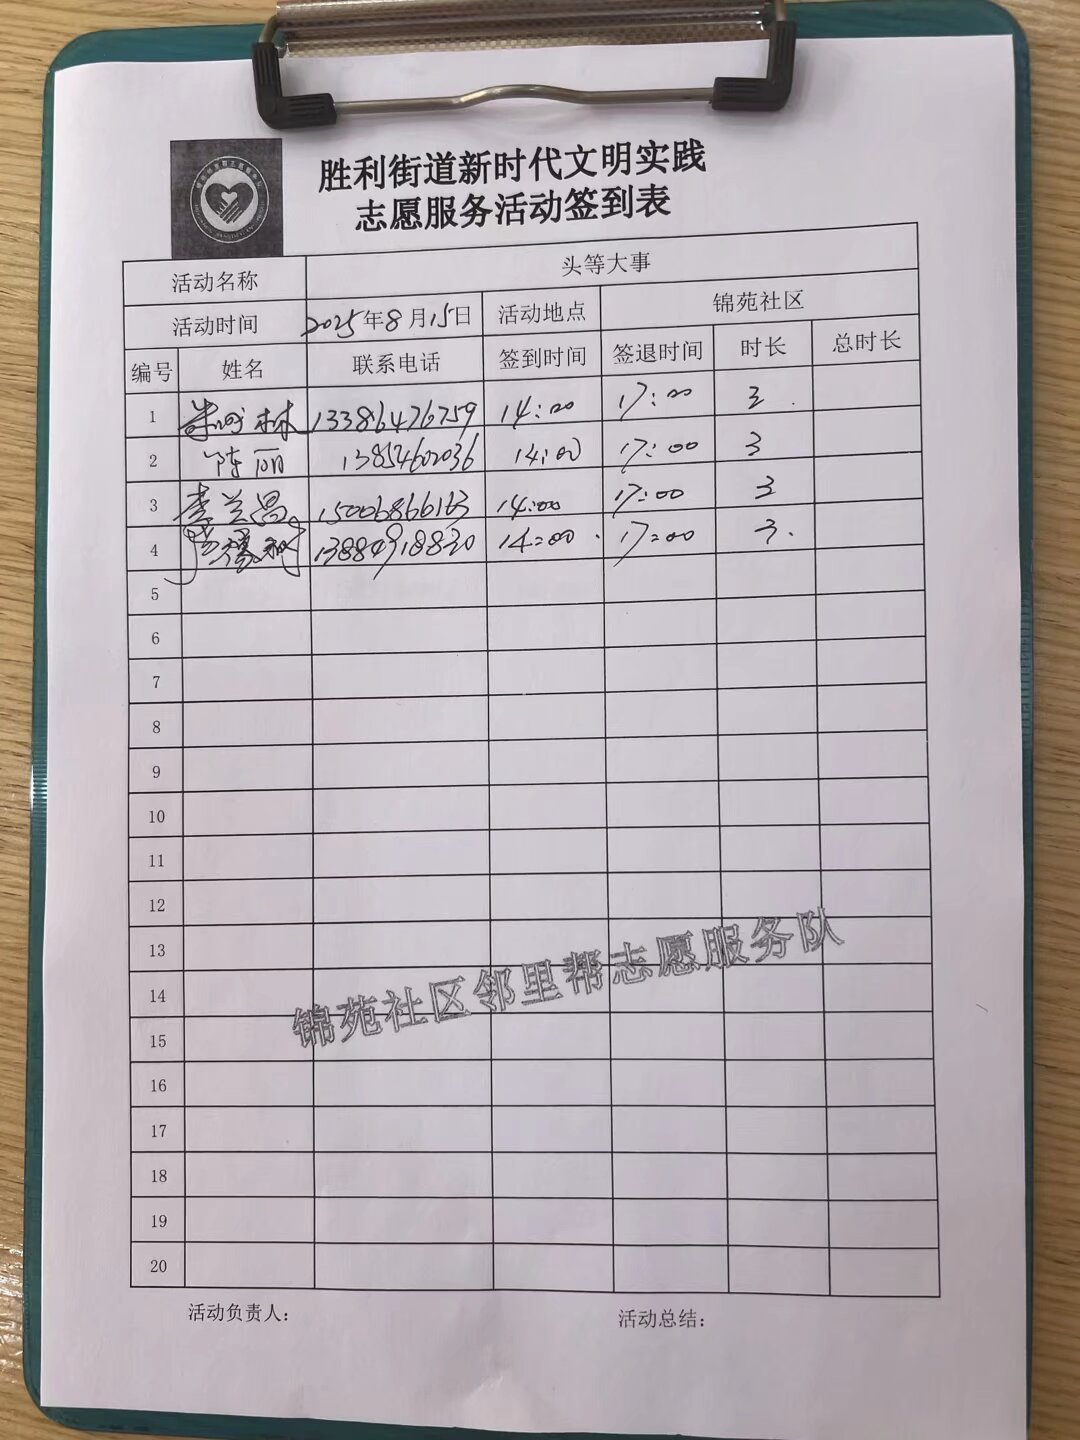 胜利街道新时代文明实践
志愿服务活动签到表
活动名称 头等大事
活动时间 2025年8月15日 活动地点 锦苑社区
编号 姓名 联系电话 签到时间 签退时间 时长 总时长
1 林 13386476759 14:00 17:00 3
2 陈丽 13854602036 14:00 17:00 3
3 李兰昌 15006866163 14:00 17:00 3
4 13884918830 14:00 17:00 3
5
6
7
8
9
10
11
12
13
14
15
16
17
18
19
20
锦苑社区邻里帮志愿服务队
活动负责人: 活动总结: